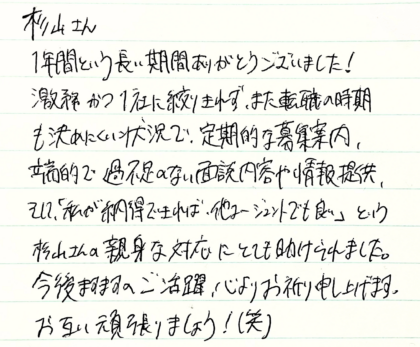 杉山さん
1年間という長い期間ありがとうございました!
激務かつ1社に絞りきれず、また転職の時期
も決めにくい状況で、定期的な募集案内、
端的で過不足のない面談内容や情報提供、
そして、「私が納得できれば、他エージェントでも良い」という
杉山さんの親身な対応にとても助けられました。
今後ますますのご活躍、心よりお祈り申し上げます。
お互い頑張りましょう!(笑)